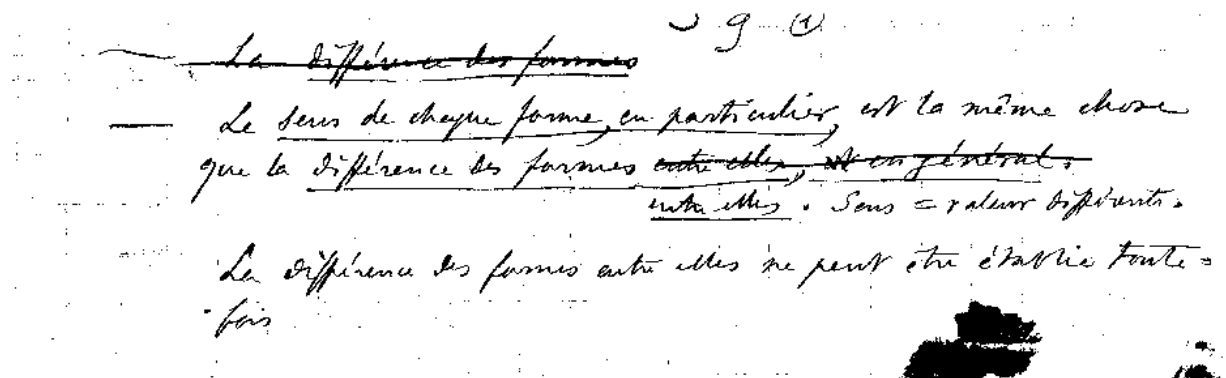 9 (1)
— La différence des formes
— Le sens de chaque forme, en particulier, est la même chose
que la différence des formes entre elles, est en général.
entre elles. Sens = valeur différente.
La différence des formes entre elles ne peut être établie toute=
fois